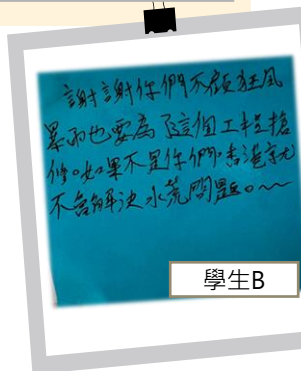 謝謝你們不顧狂風
暴雨也要為了這個工程搶
修。如果不是你們,香港就
不會解決水荒問題。~~
學生B